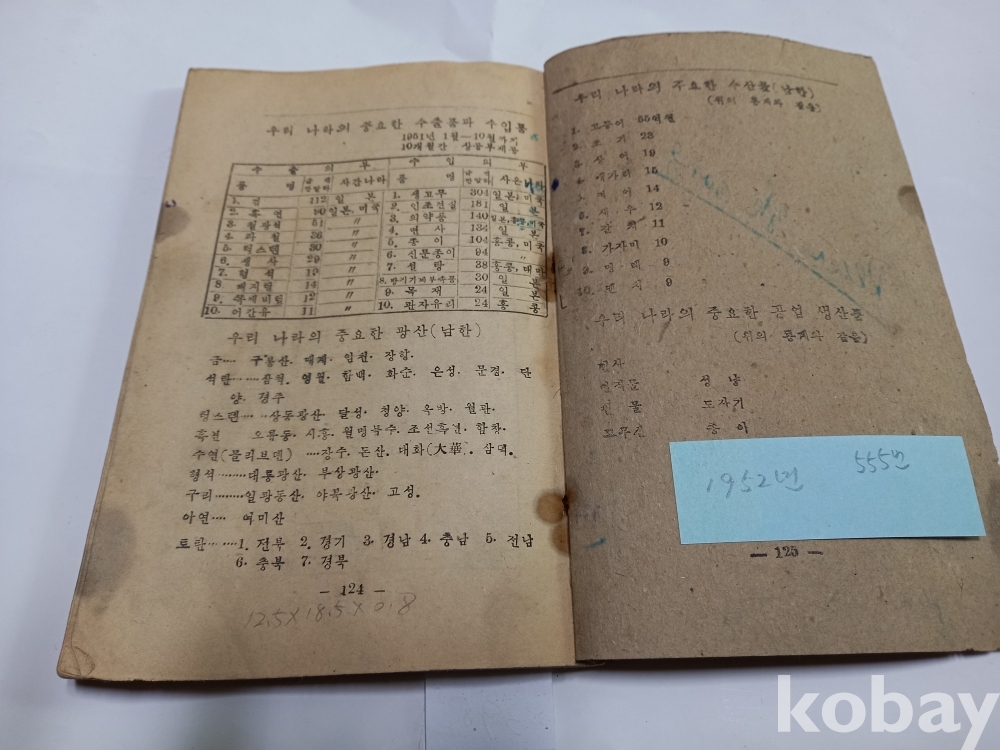 우리 나라의 중요한 수출품과 수입품
1951년 1월—10월까지
10개월간 상공부 제공
수 출 의 부 수 입 의 부
품 명 사간나라 품 명 사온나라
1. 112 일 본 1. 생고무 304 일본, 미국
2. 흑 연 90 일본, 미국 2. 인조견실 181 일 본
3. 형광석 51 〃 3. 의약품 140
4. 36 〃 4. 면 사 134 일 본
5. 텅스텐 30 〃 5. 종 이 104 홍콩, 미국
6. 생 사 29 〃 6. 신문종이 94 〃
7. 형 석 〃 7. 설 탕 38 홍콩, 대만
8. 돼지털 14 〃 8. 30 일 본
9. 12 〃 9. 목 재 24 일 본
10. 어간유 11 〃 10. 판자유리 24 홍 콩
우리 나라의 중요한 광산(남한)
금‥‥ 구룡산. 임천. 장항.
석탄‥‥ 삼척. 영월. 함백. 화순. 은성. 문경. 단
양. 경주
텅스텐‥‥상동광산. 달성. 청양. 옥방. 월판.
흑연 시흥. 월명특수. 조선흑연. 함창.
수연(몰리브덴)‥‥장수. 돈산. 대화(大華). 삼덕.
형석‥‥‥대룡광산. 부상광산.
구리‥‥‥일광동산. 야목광산. 고성.
아연‥‥ 여미산
토탄‥‥‥1. 전북 2. 경기 3. 경남 4. 충남 5. 전남
6. 충북 7. 경북
— 124 —
12.5×18.5×0.8
우리 나라의 주요한 수산물(남한)
(위의 통계와 같음)
1. 고등어 65억원
2. 조 기 23
3. 상 어 19
4. 15
5. 14
6. 새 우 12
7. 갈 치 11
8. 가자미 10
9. 명 태 9
10. 멸 치 9
우리 나라의 중요한 공업 생산품
(위의 통계와 같음)
면사
성 냥
도자기
종 이
1952년 555번
— 125 —
kobay